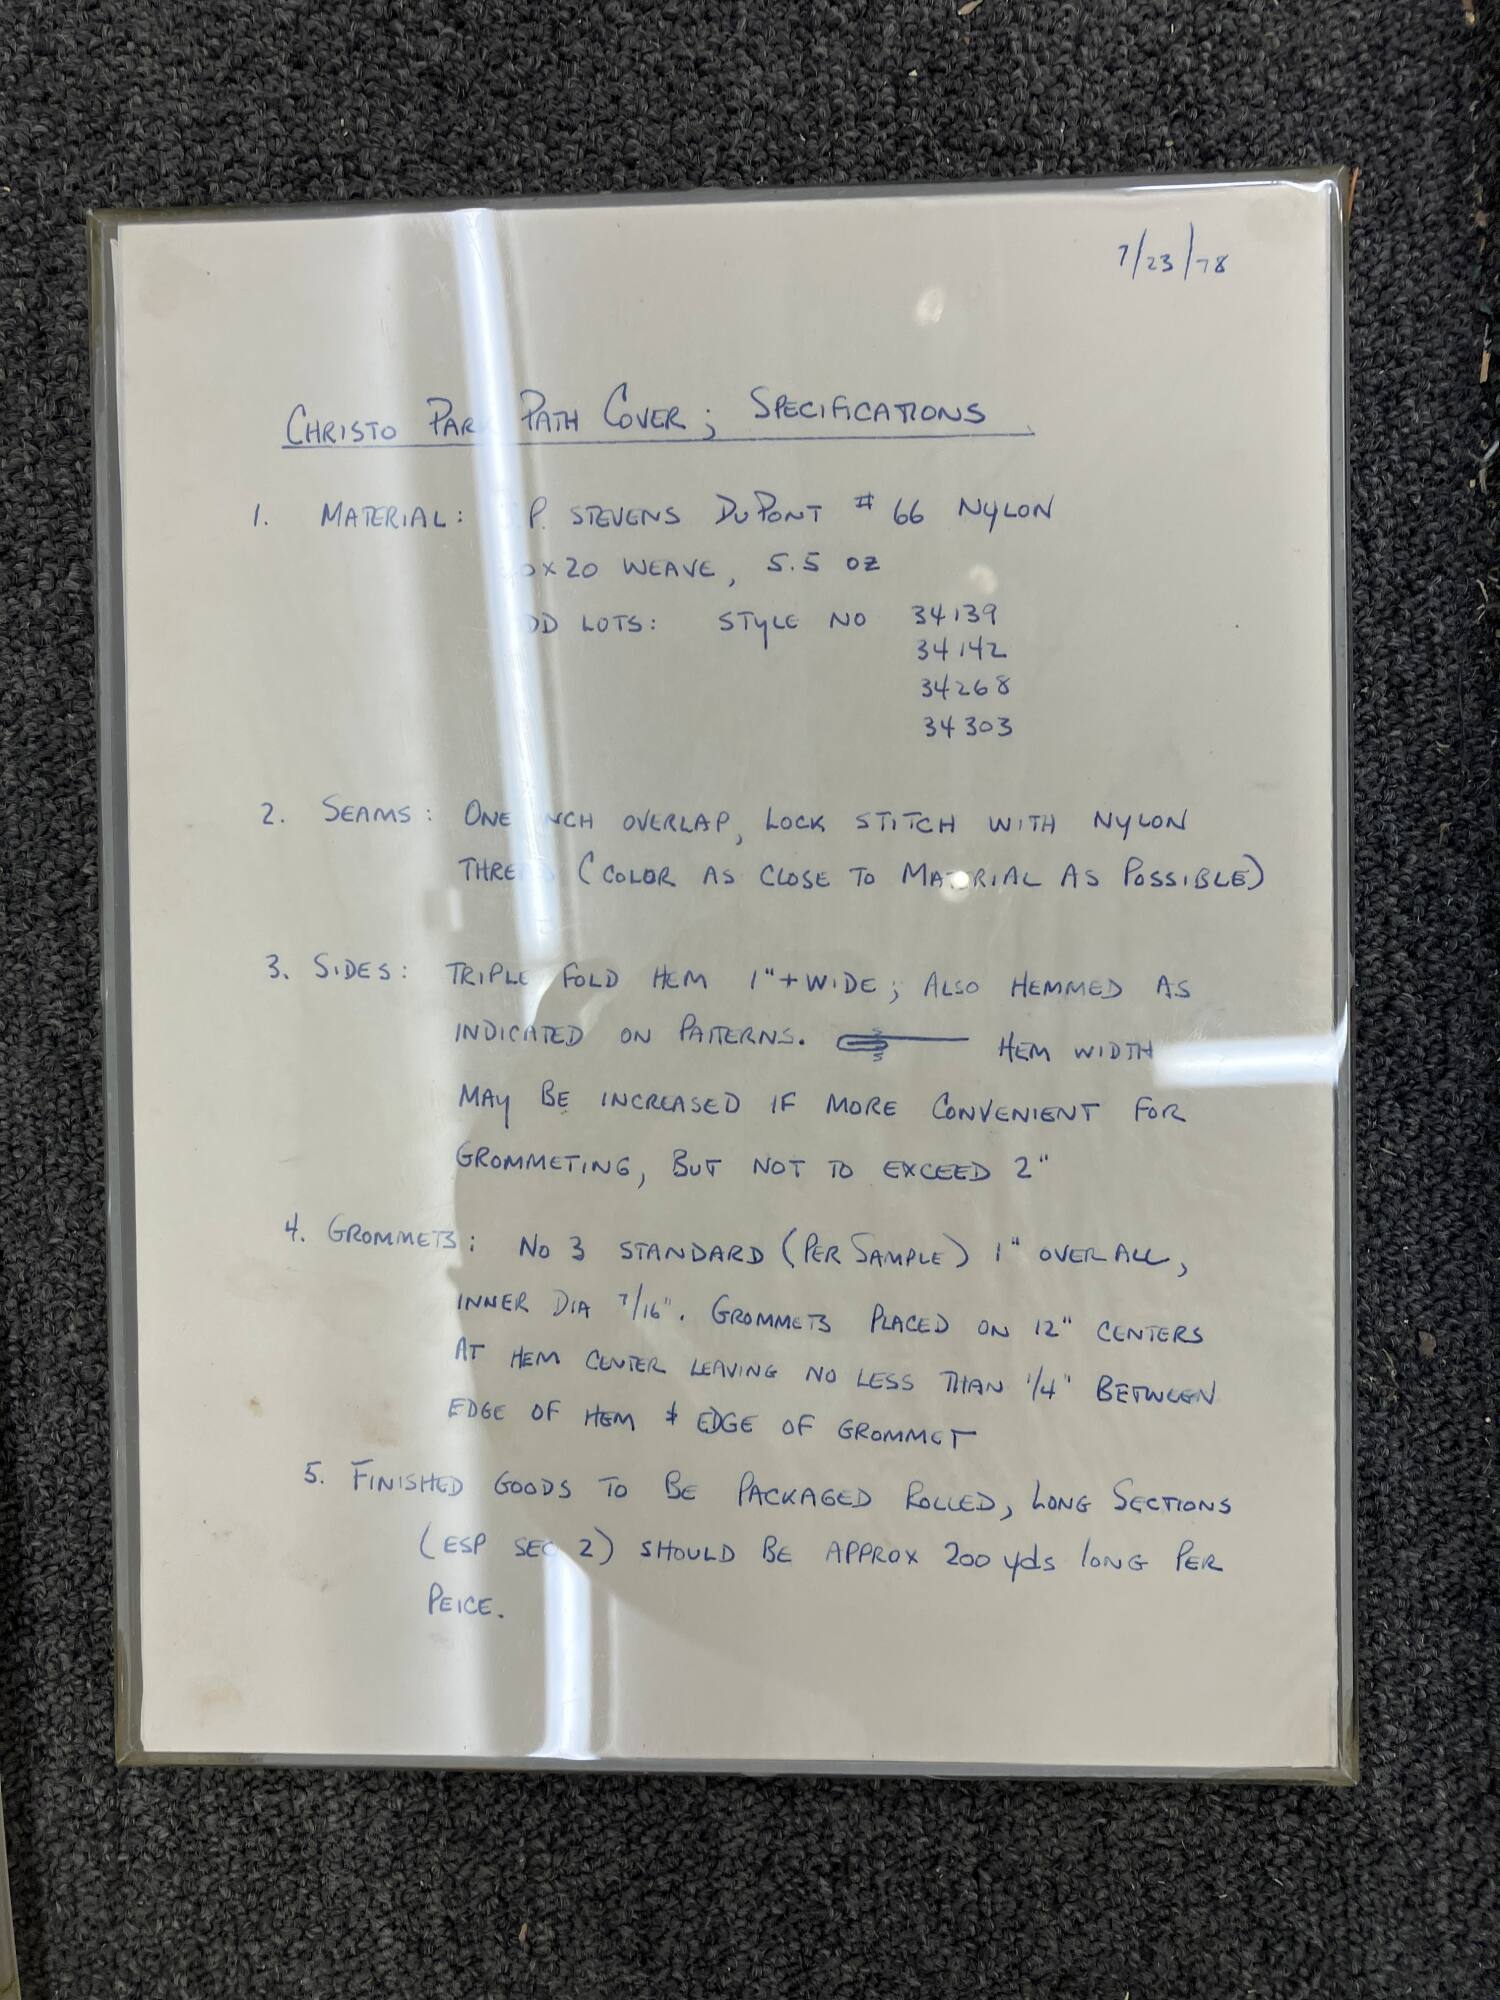 7/23/78
CHRISTO PARK PATH COVER; SPECIFICATIONS
1. MATERIAL: P. STEVENS DUPONT # 66 NYLON
x20 WEAVE, 5.5 OZ
LOTS: STYLE NO 34139
34142
34268
34303
2. SEAMS: ONE INCH OVERLAP, LOCK STITCH WITH NYLON
THREAD (COLOR AS CLOSE TO MATERIAL AS POSSIBLE)
3. SIDES: TRIPLE FOLD HEM 1"+ WIDE; ALSO HEMMED AS
INDICATED ON PATTERNS. HEM WIDTH
MAY BE INCREASED IF MORE CONVENIENT FOR
GROMMETING, BUT NOT TO EXCEED 2"
4. GROMMETS: NO 3 STANDARD (PER SAMPLE) 1" OVER ALL,
INNER DIA 7/16". GROMMETS PLACED ON 12" CENTERS
AT HEM CENTER LEAVING NO LESS THAN 1/4" BETWEEN
EDGE OF HEM & EDGE OF GROMMET
5. FINISHED GOODS TO BE PACKAGED ROLLED, LONG SECTIONS
(ESP SEC 2) SHOULD BE APPROX 200 yds LONG PER
PEICE.